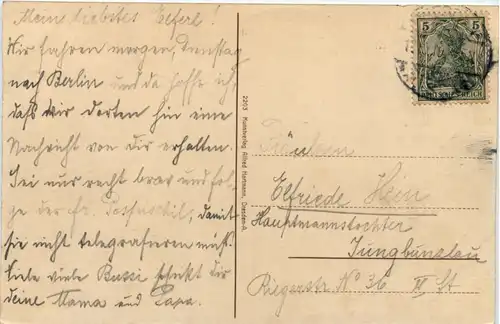 Mein liebstes Elferl!
Wir fahren morgen, Dienstag
nach Berlin und da hoffe ich,
daß wir dorten hin eine
Nachricht von dir erhalten.
Sei nur recht brav und fol-
ge der fr. damit
sie nicht telegrafieren muß.
Viele viele Bussi schickt dir
deine Mama und Papa.
2203 Kunstverlag Alfred Hartmann, Dresden-A.
5 5
Fräulein
Elfriede
Hauptmannstochter
Jungbunzlau
Riegerstr No 36 II St